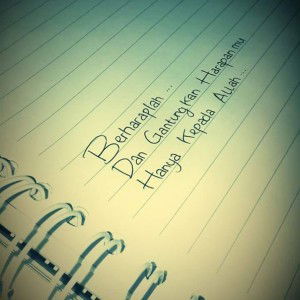 Berharaplah ...
Dan Gantungkan Harapanmu
Hanya Kepada Allah ...